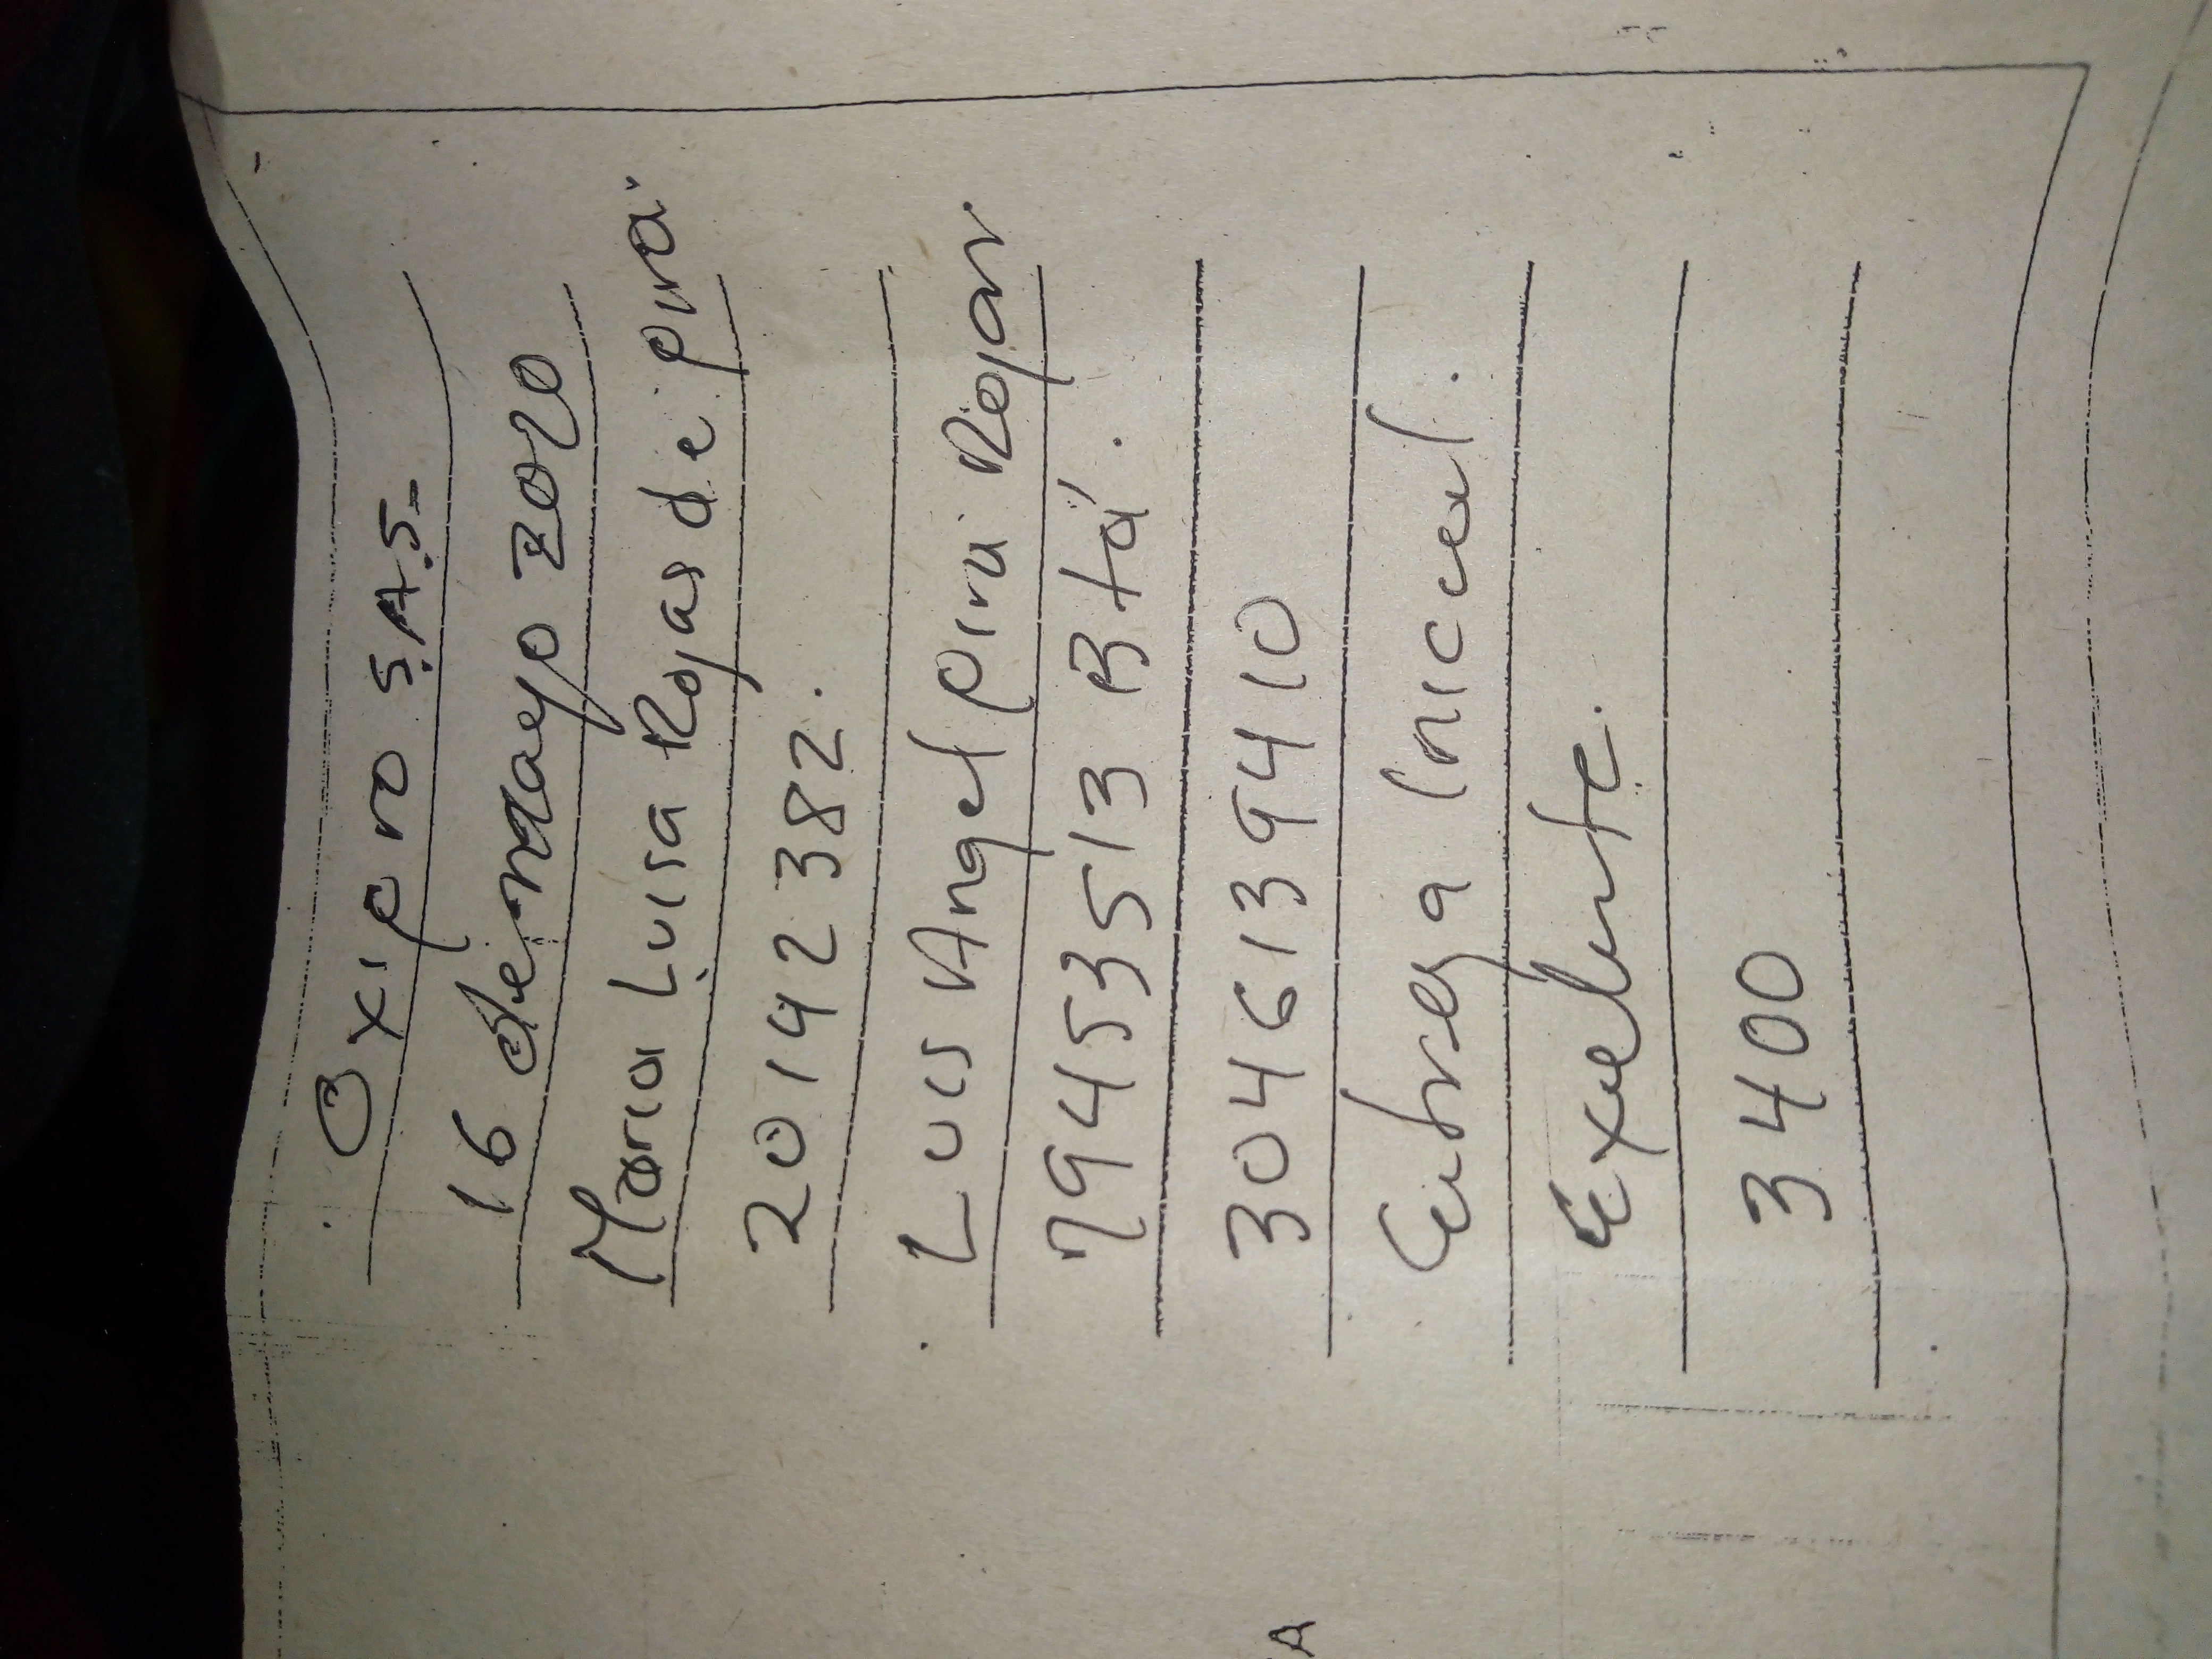 Oxipro S.A.S.
16 de mayo 2020
Maria Luisa Rojas de pira
20142382.
Luis Angel pira Rojas
79453513 Btá.
3046139410
Entrega Inicial.
Exelente.
3400
A